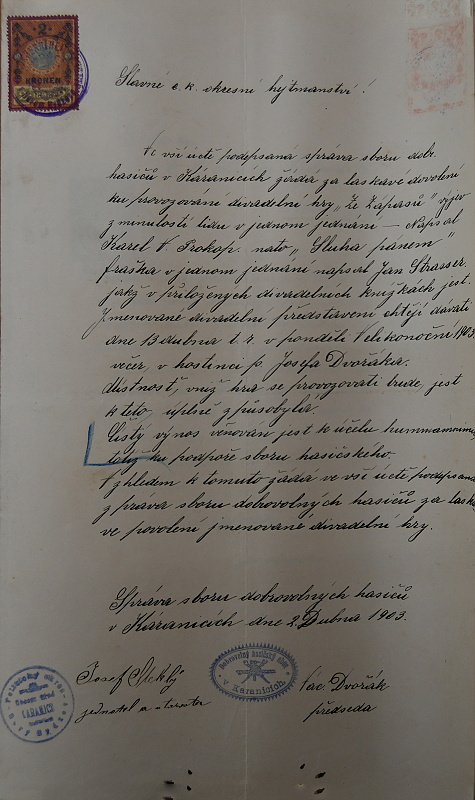 2
KRONEN
Slavné c. k. okresní hejtmanství!
Ve vší úctě podepsaná správa sboru dobr.
hasičů v Káranicích žádá za laskavé dovolení
ku provozování divadelní hry „Ze Zápasů" výjev
z minulosti lidu v jednom jednání — Napsal
Karel V. Prokop. nato „Sluha pánem"
fraška v jednom jednání napsal Jan Strasser.
jakž v přiložených divadelních knížkách jest.
Jmenované divadelní představení chtějí dávati
dne 13 dubna t. r. v pondělí Velikonoční 1903.
večer, v hostinci p. Josefa Dvořáka.
Místnost, v níž hra se provozovati bude, jest
k této, úplně způsobylá.
Čistý výnos věnován jest k účelu
totiž ku podpoře sboru hasičského.
Vzhledem k tomuto žádá ve vší úctě podepsaná
zpráva sboru dobrovolných hasičů za laska
ve povolení jmenované divadelní hry.
Správa sboru dobrovolných hasičů
v Káranicích dne 2. Dubna 1903.
Josef
jednatel a starosta
Dobrovolný hasičský sbor
v Káranicích.
Vác. Dvořák
předseda
Obecní úřad
KARANICE